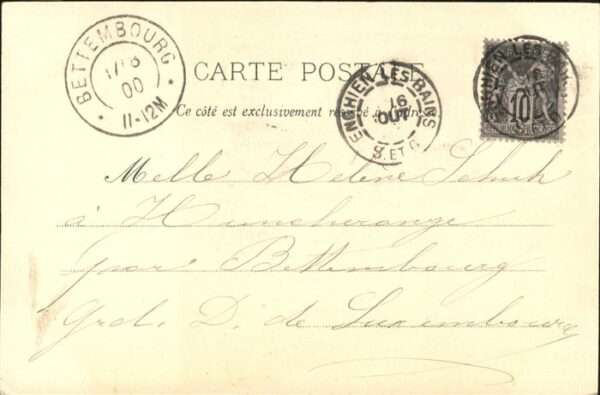 BETTEMBOURG
17/8
00
11-12M
CARTE POSTALE
Ce côté est exclusivement réservé à l'adresse
ENGHIEN-LES-BAINS
16
OUT
S. ET O.
ENGHIEN-LES-BAINS
10
Melle Helene Schuh
à Huncherange
par Bettembourg
Grd. D. de Luxembourg